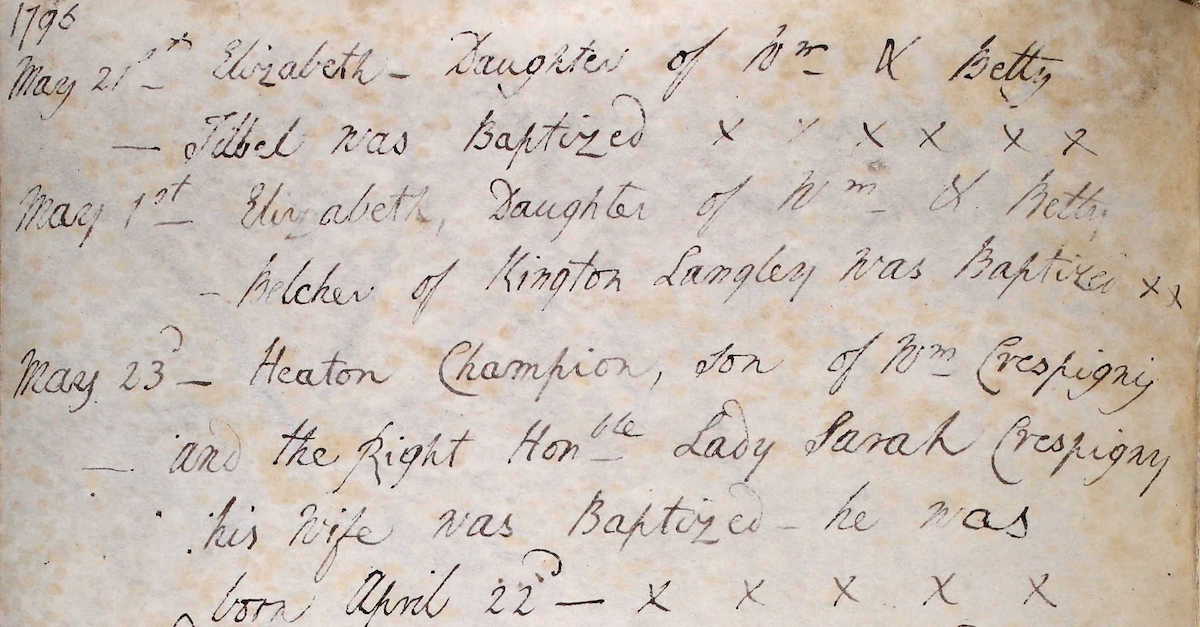 1796
May 21st Elizabeth - Daughter of Wm & Betty
— was Baptized x x x x x x
May 1st Elizabeth, Daughter of Wm & Betty
- Belcher of Kington Langley was Baptized x x
May 23d — Heaton Champion, son of Wm Crespigny
— and the Right Honble Lady Sarah Crespigny
his Wife was Baptized - he was
born April 22d — x x x x x